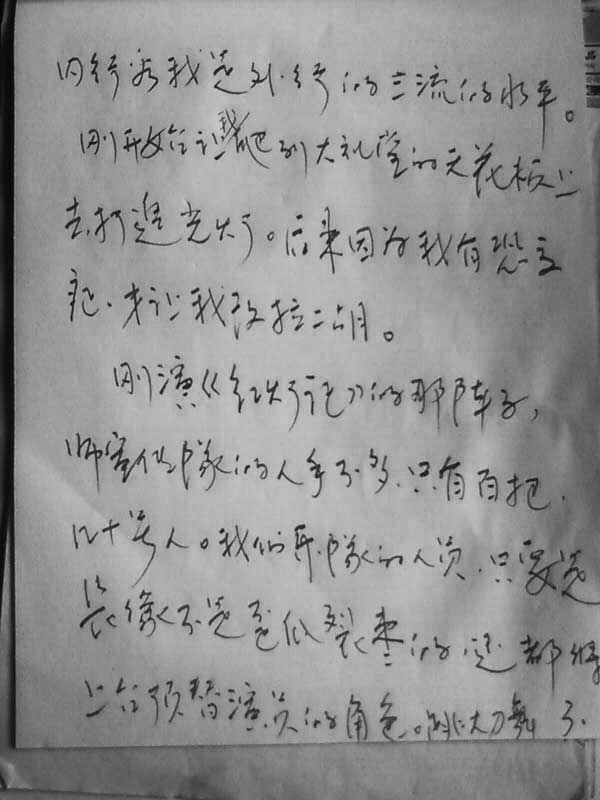 内行看我是外行的三流的水平。
刚开始让我爬到大礼堂的天花板上
去打追光灯。后来因为我有恐高
症、才让我改拉二胡。
刚演《红灯记》的那阵子，
师宣传队的人手不多、只有百把
几十号人。我们乐队的人员、只要是
长像不是歪瓜裂枣的、还都得
上台顶替演员的角色。跳大刀舞了、